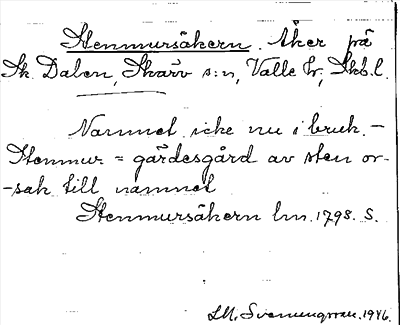 Stenmursåkern. Åker på
Sk. Dalen, Skarv s:n, Valle hr, Skb.l.
Namnet icke nu i bruk. -
Stenmur = gärdesgård av sten or-
-sak till namnet
Stenmursåkern lm. 1798. S.
I.M. Svenungsson. 1946.